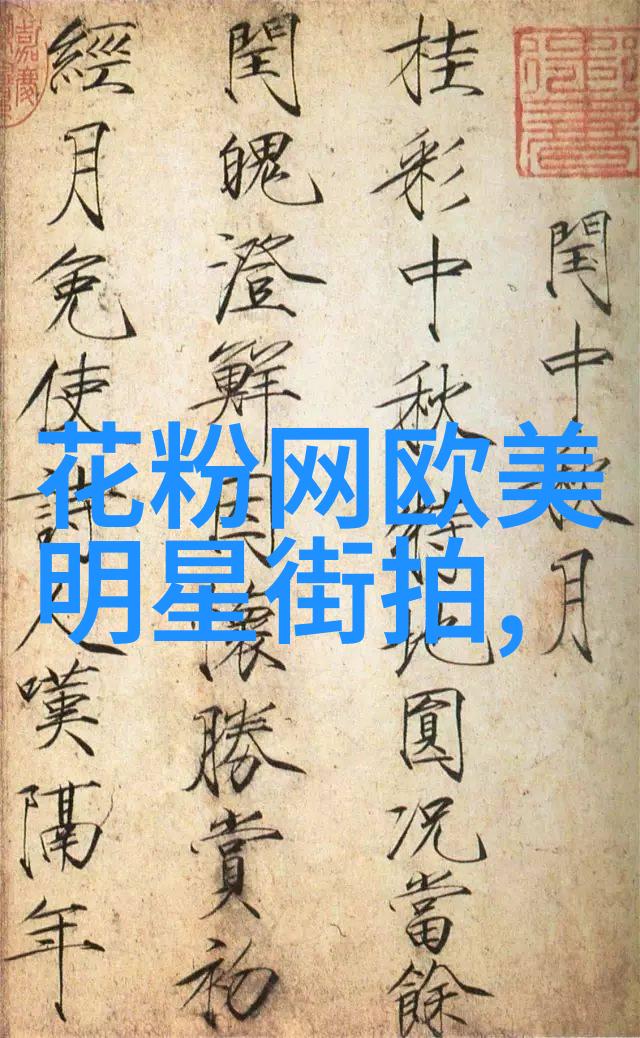 閏中秋月
桂彩中秋特地圓况當餘
閏魄澄鮮因懷勝賞初
經月免使詩人嘆隔年
花粉网欧美
明星街拍,